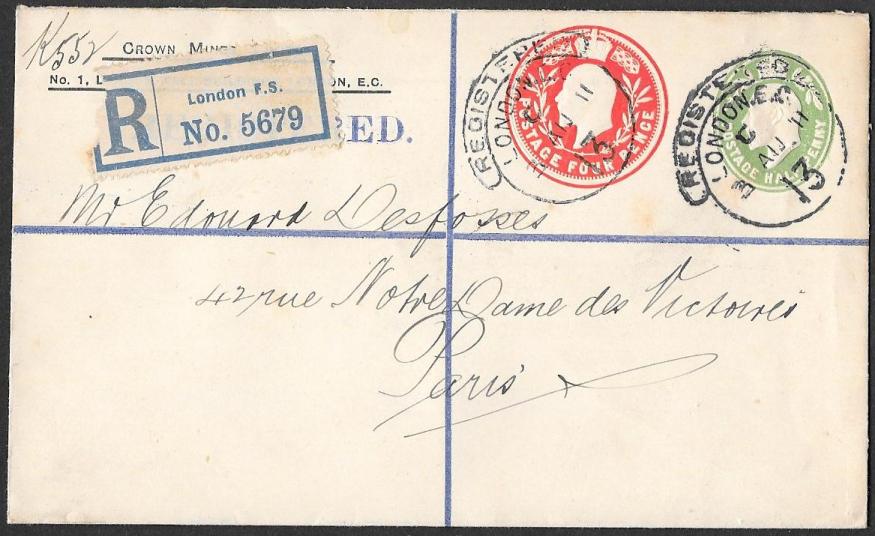 K552
CROWN MINE
No. 1, L ON, E.C.
R
London F.S.
No. 5679
ED.
REGISTERED
LONDON. E.C.
AU 11
13
POSTAGE FOUR PENCE
REGISTERED
LONDON. E.C.
AU 11
13
POSTAGE HALFPENNY
Mr Edouard Desfosses
42 rue Notre Dame des Victoires
Paris